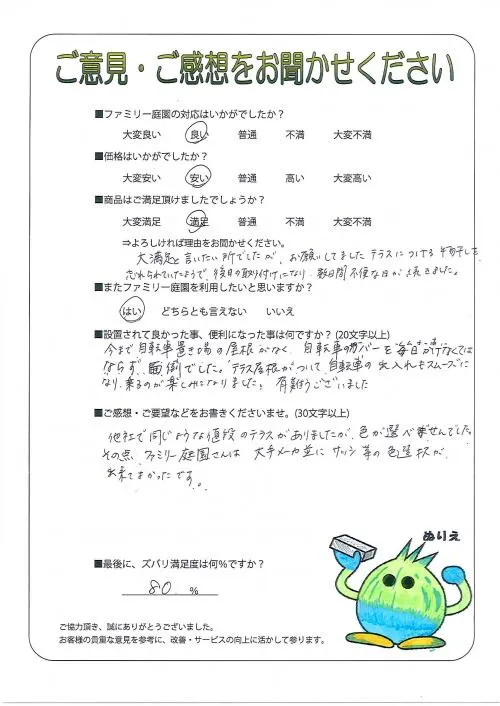 ご意見・ご感想をお聞かせください
■ファミリー庭園の対応はいかがでしたか？
大変良い 良い 普通 不満 大変不満
■価格はいかがでしたか？
大変安い 安い 普通 高い 大変高い
■商品はご満足頂けましたでしょうか？
大変満足 満足 普通 不満 大変不満
⇒よろしければ理由をお聞かせください。
大満足と言いたい所でしたが、お願いしてました テラスにつける物干しを
忘れられていたようで、後日の取り付けになり、数日間不便な日が続きました。
■またファミリー庭園を利用したいと思いますか？
はい どちらとも言えない いいえ
■設置されて良かった事、便利になった事は何ですか？(20文字以上)
今まで自転車置き場の屋根がなく、自転車のカバーを毎日かけなくては
ならず、面倒でした。テラス屋根がついて、自転車の出入れもスムーズに
なり、乗るのが楽しみになりました。有難うございました
■ご感想・ご要望などをお書きくださいませ。(30文字以上)
他社で同じような値段のテラスがありましたが、色が選べませんでした。
その点、ファミリー庭園さんは 大手メーカ並に サッシ等の色選択が
出来てよかったです。
ぬりえ
■最後に、ズバリ満足度は何％ですか？
80 ％
ご協力頂き、誠にありがとうございました。
お客様の貴重な意見を参考に、改善・サービスの向上に活かして参ります。